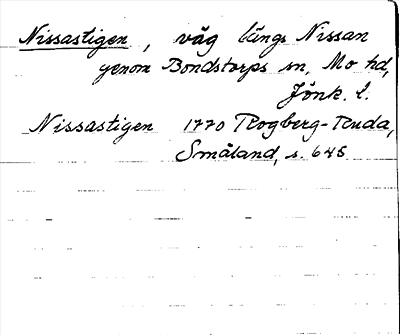 Nissastigen, väg längs Nissan
genom Bondstorps sn, Mo hd,
Jönk. l.
Nissastigen 1770 Rogberg-Ruda,
Småland, s. 645